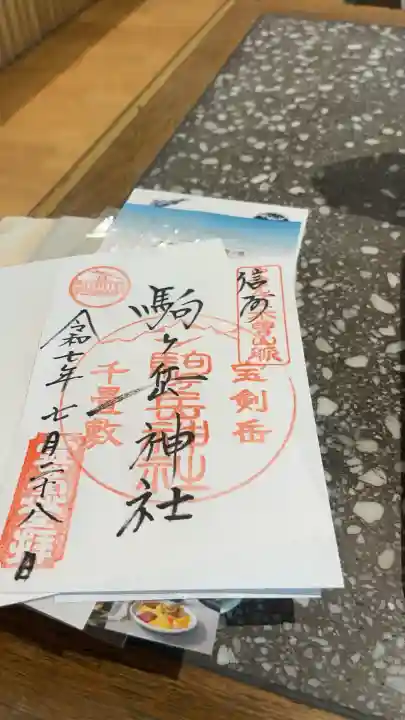 信州
木曽山脈
宝剣岳
駒ヶ岳神社
駒ヶ岳神社
千畳敷
令和七年七月二十八日
登拝